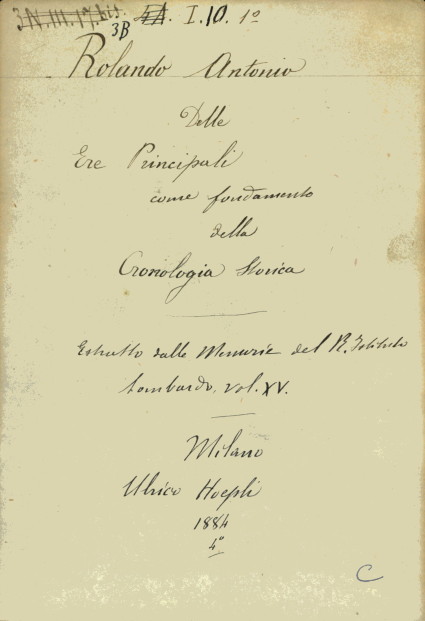 3 N. III. 17. bis. 4A. I.10. 1º
3B
Rolando Antonio
Delle
Ere Principali
come fondamento
della
Cronologia Storica
Estratto dalle Memorie del R. Istituto
Lombardo, vol. XV.
Milano
Ulrico Hoepli
1884
4º
C